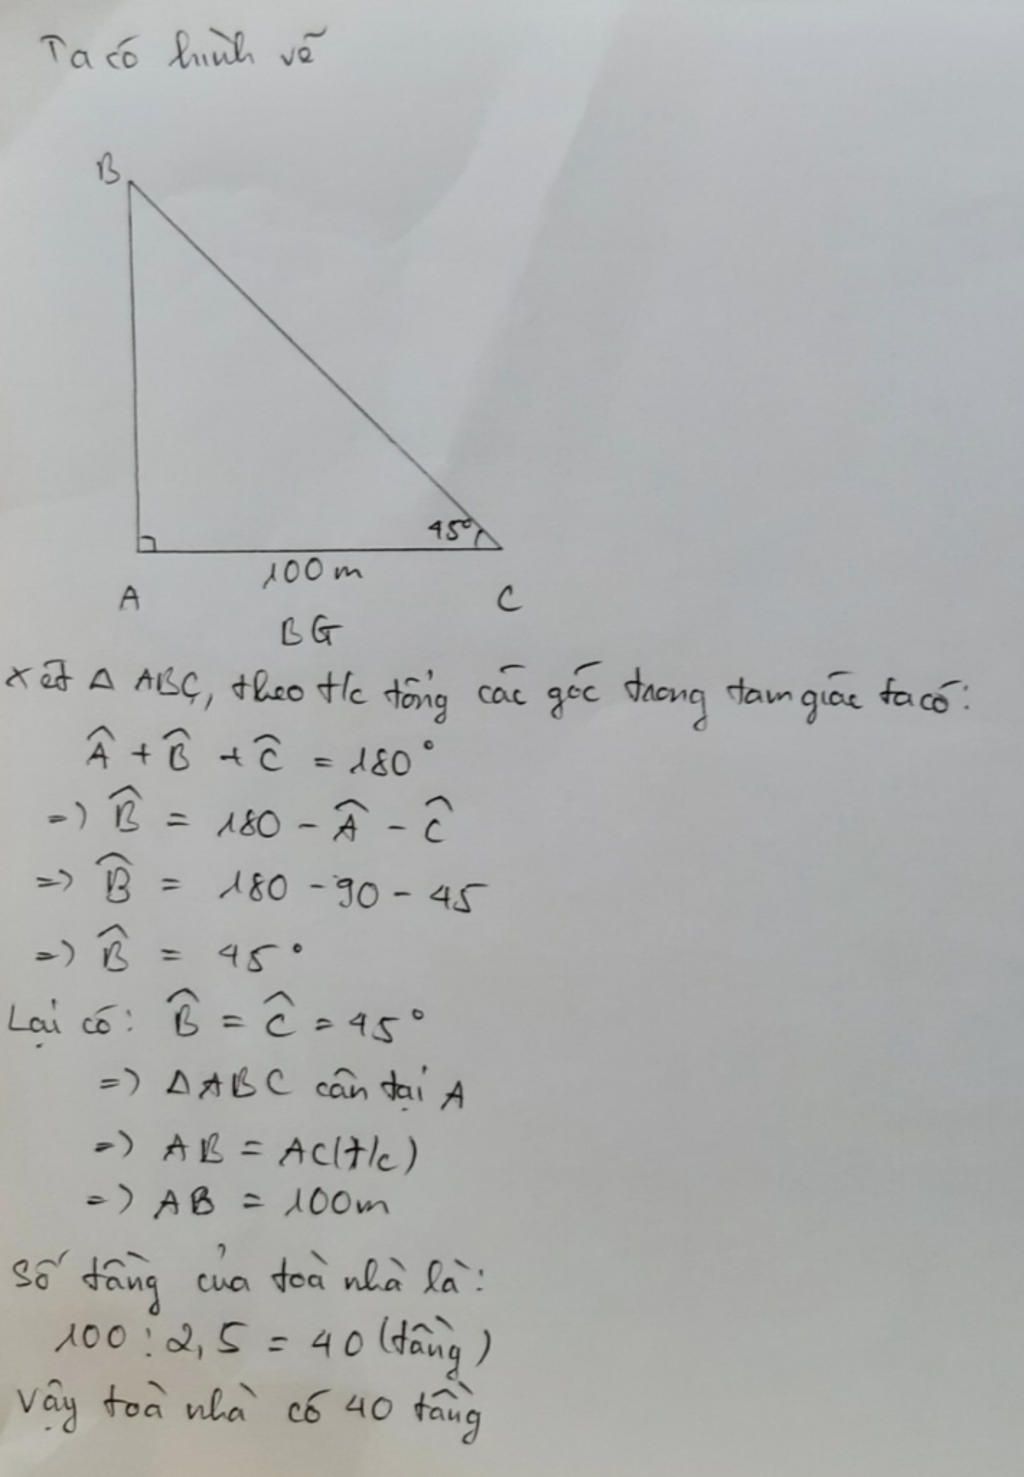 Ta có hình vẽ
B
45°
100m
A
C
BG
Xét Δ ABC, theo t/c tổng các góc trong tam giác ta có:
Â + B̂ + Ĉ = 180°
=) B̂ = 180 - Â - Ĉ
=) B̂ = 180 - 90 - 45
=) B̂ = 45°
Lại có: B̂ = Ĉ = 45°
=) ΔABC cân tại A
=) AB = AC(t/c)
=) AB = 100m
Số tầng của toà nhà là:
100 : 2,5 = 40 (tầng)
Vậy toà nhà có 40 tầng